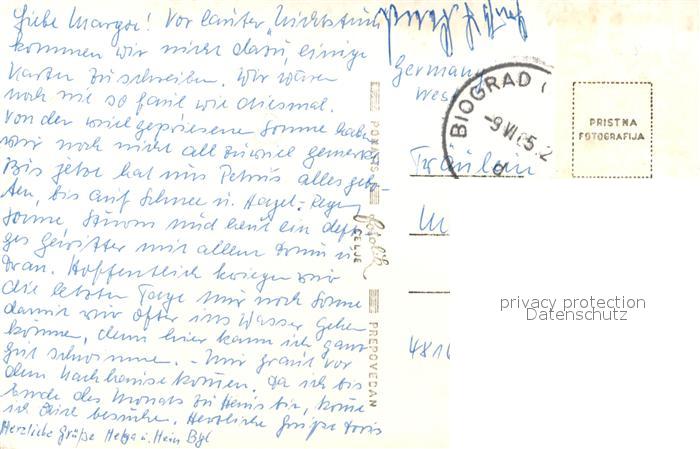 Liebe Margot! Vor lauter Nichtstun
kommen wir nicht dazu, einige
Karten zu schreiben. Wir waren
noch nie so faul wie diesmal.
Von der vielgepriesene Sonne habe
wir noch nicht allzuviel gemerkt.
Bis jetzt hat uns Petrus alles gebo-
ten, bis auf Schnee u. Hagel. Regen
Sonne, Sturm und heut ein defti-
ges Gewitter mit allem Drum u.
Dran. Hoffentlich kriegen wir
die letzten Tage nur noch Sonne
damit wir öfter ins Wasser gehen
können, denn hier kann ich ganz
gut schwimme. - Mir graut vor
dem Nachhausekommen. Da ich bis
Ende des Monats zu Hause bin, komme
ich Dich besuchen. Herzliche Grüße Doris
Herzliche Grüße Helga u. Hein
Germany
Wes
BIOGRAD
-9 VI 65.
PRISTNA
FOTOGRAFIJA
Fräulein
M
481
PONATIS
CELJE
PREPOVEDAN
privacy protection
Datenschutz